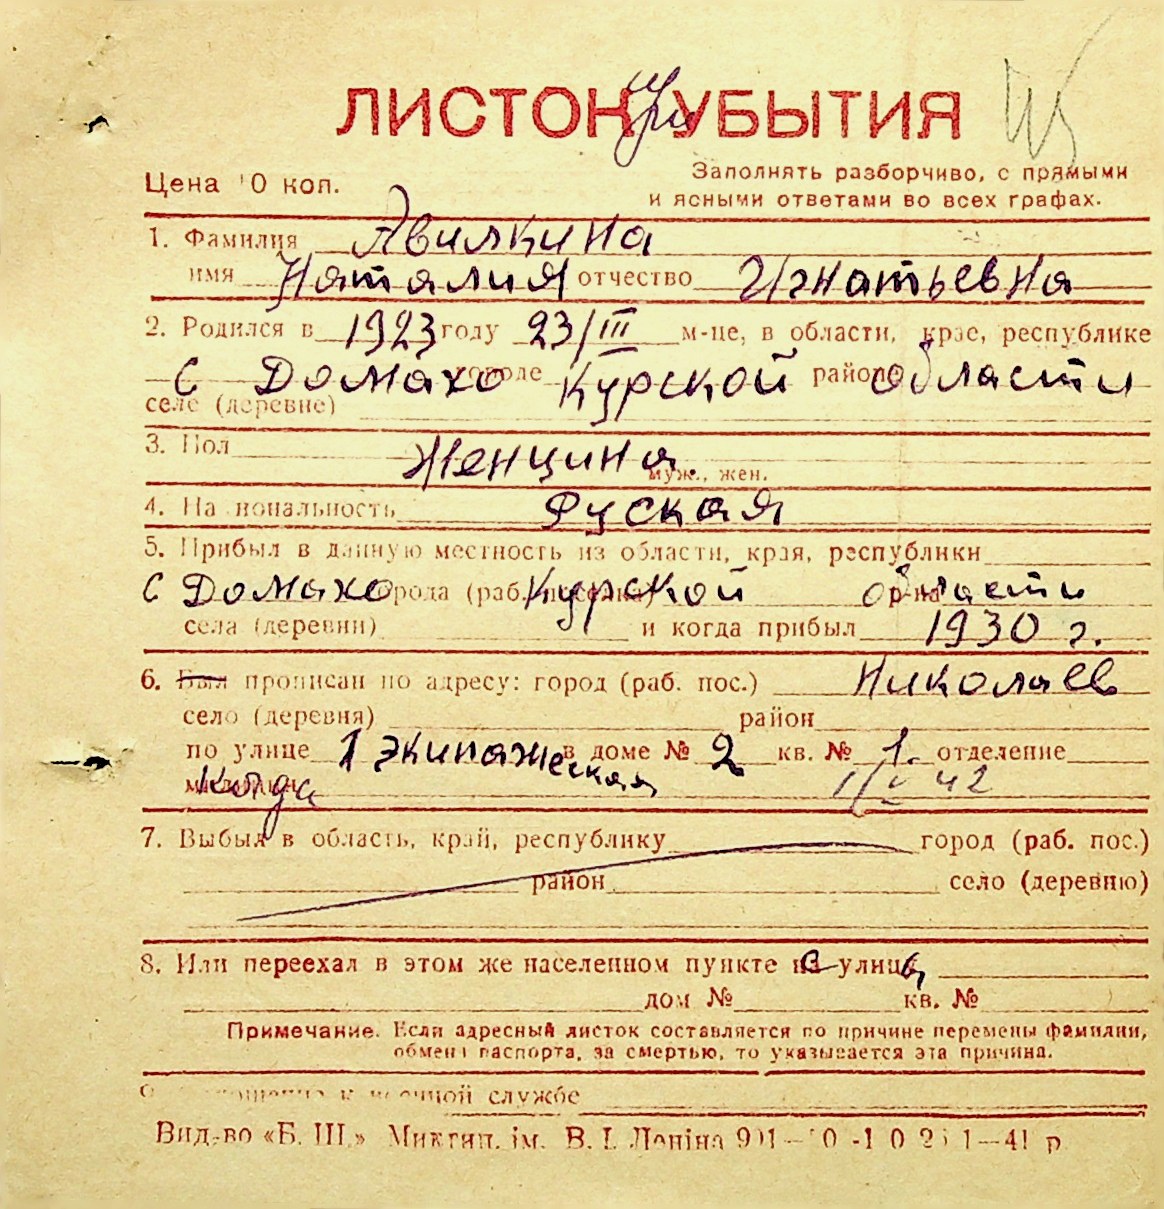 ЛИСТОК при УБЫТИЯ
Цена 10 коп.
Заполнять разборчиво, с прямыми
и ясными ответами во всех графах.
1. Фамилия Авилкина
имя Наталия отчество Игнатьевна
2. Родился в 1923 году 23/III м-це, в области, крае, республике
с Домахо городе Курской районе области
селе (деревне)
3. Пол Женщина
муж., жен.
4. Национальность Руская
5. Прибыл в данную местность из области, края, республики
с Домахо города (раб. поселка) Курской р-на области
села (деревни) и когда прибыл 1930 г.
6. Был прописан по адресу: город (раб. пос.) Николаев
село (деревня) район
по улице 1 Экипажеская в доме № 2 кв. № 1. отделение
милиции Когда 1/V 42
7. Выбыл в область, край, республику город (раб. пос.)
район село (деревню)
8. Или переехал в этом же населенном пункте на с улицы
дом № кв. №
Примечание. Если адресный листок составляется по причине перемены фамилии,
обмена паспорта, за смертью, то указывается эта причина.
9. отношение к военной службе
Вид-во «Б. Ш.» Микгип. ім. В. І. Леніна